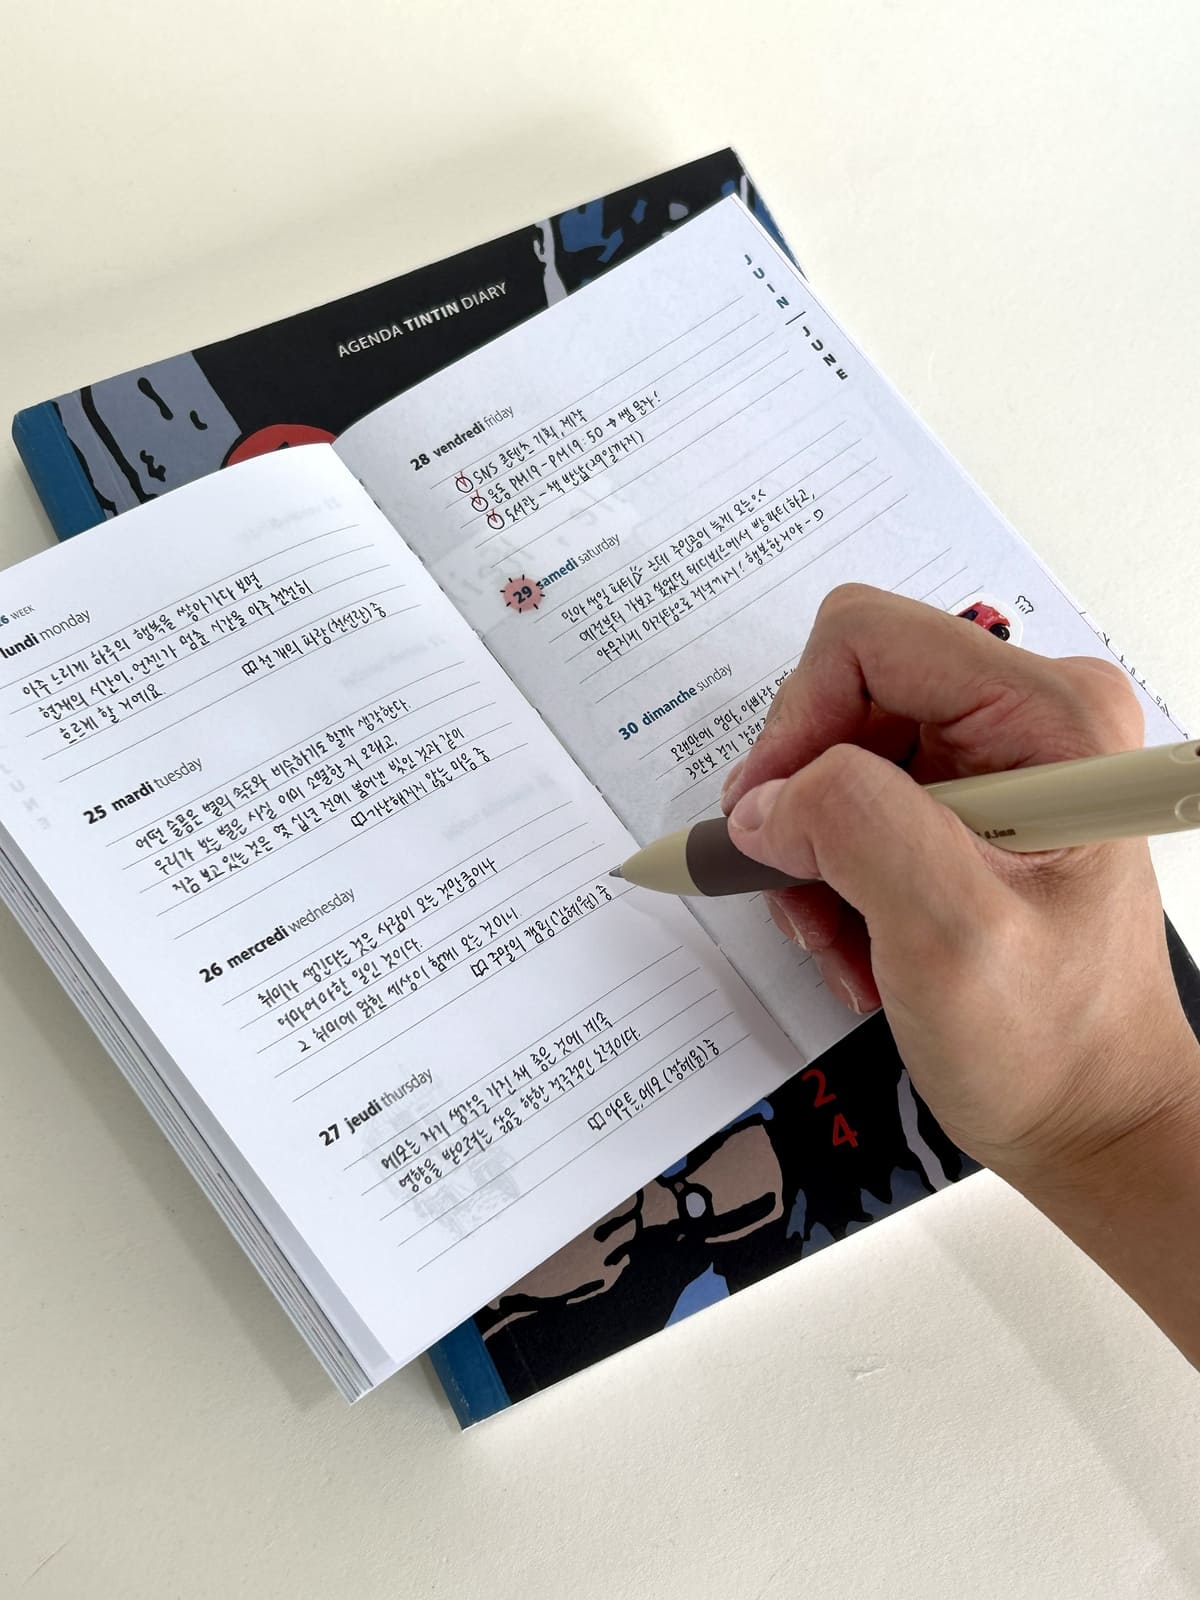 AGENDA TINTIN DIARY
26 WEEK
lundi monday
아주 느리게 하루의 행복을 쌓아가다 보면
현재의 시간이, 언젠가 멈춘 시간을 아주 천천히
흐르게 할 거예요.
천 개의 파랑(천선란) 중
25 mardi tuesday
어떤 슬픔은 별의 속도와 비슷하기도 할까 생각한다.
우리가 보는 별은 사실 이미 소멸한 지 오래고,
지금 보고 있는 것은 몇 십년 전에 뿜어낸 빛인 것과 같이
가난해지지 않는 마음 중
26 mercredi wednesday
취미가 생긴다는 것은 사람이 오는 것만큼이나
어마어마한 일인 것이다.
그 취미에 얽힌 세상이 함께 오는 것이니.
주말의 캠핑(김혜원) 중
27 jeudi thursday
메모는 자기 생각을 가진 채 좋은 것에 계속
영향을 받으려는 삶을 향한 적극적인 노력이다.
아무튼, 메모 (정혜윤) 중
JUIN | JUNE
28 vendredi friday
SNS 콘텐츠 기획, 제작
운동 PM19-PM19:50 → 쌤 문자!
도서관 - 책 반납(29일까지)
29 samedi saturday
민아 생일 파티 근데 주인공이 늦게 오는
예전부터 가보고 싶었던 테디뵈르에서 빵파티하고,
야무지게 마라탕으로 저녁까지! 행복한거야~
30 dimanche sunday
오랜만에 엄마, 아빠랑
3만보 걷기
0.5mm
24